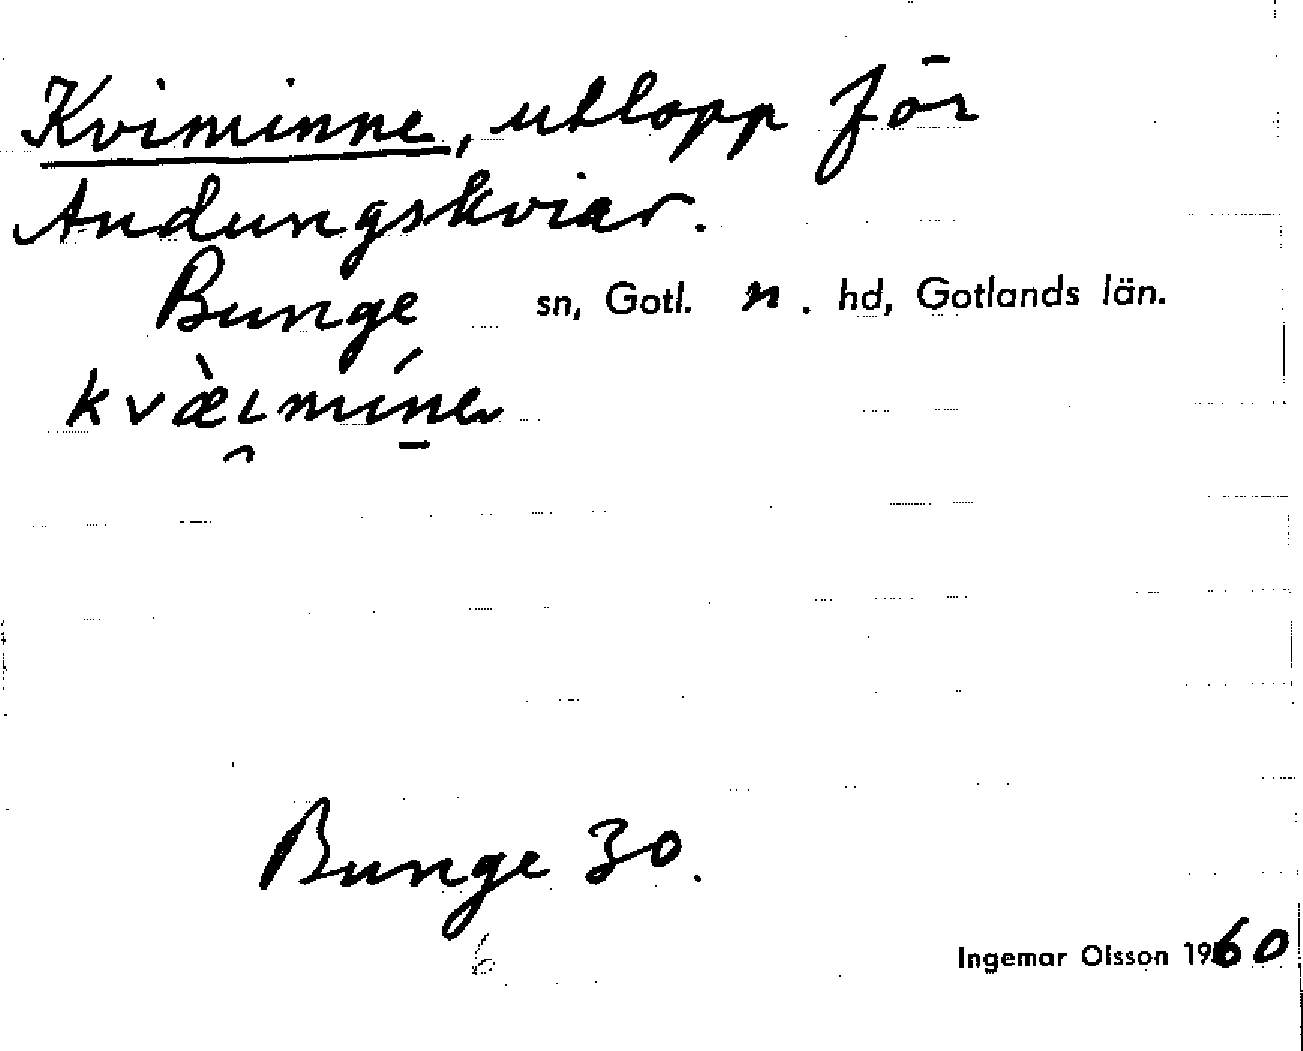 Kviminne, utlopp för
Andungskviar.
Bunge sn, Gotl. n. hd, Gotlands län.
kvæ̀i̯mín̲e
Bunge 30.
6
Ingemar Olsson 1960